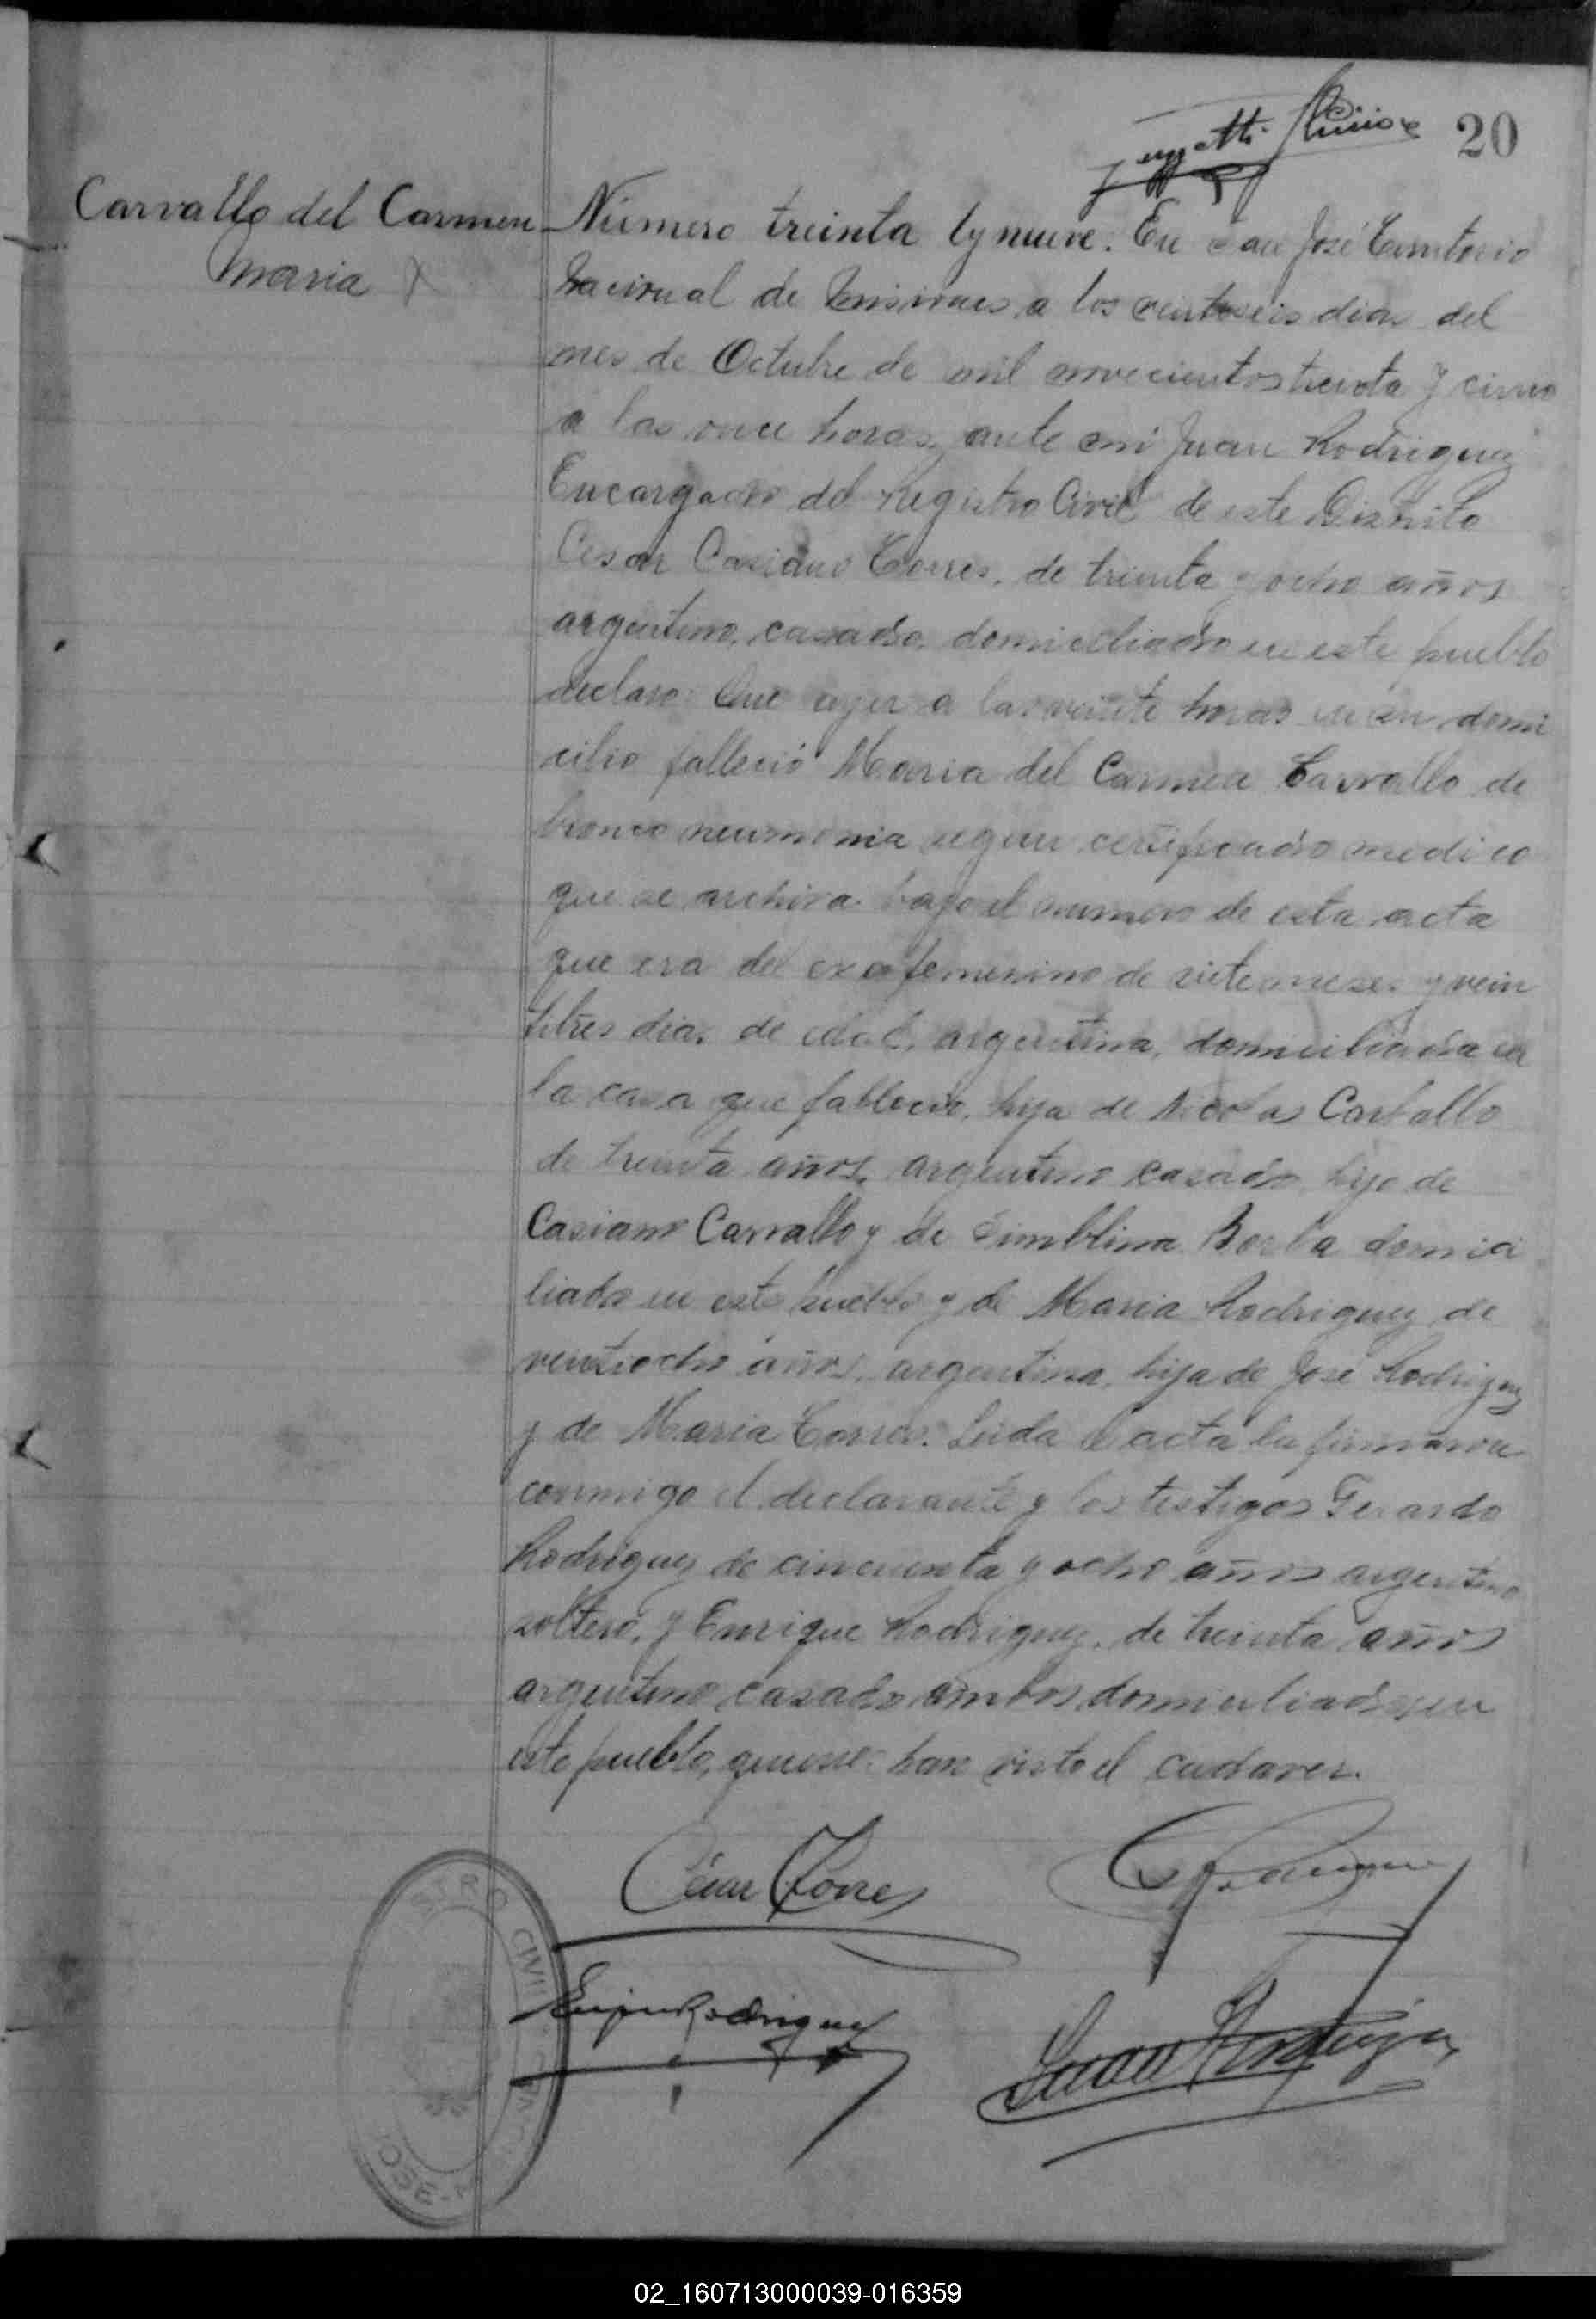 20
Carvallo del Carmen
Maria
Número treinta y nueve. En San José Territorio
Nacional de Misiones a los veintiseis dias del
mes de Octubre de mil novecientos treinta y cinco
a las once horas, ante mi Juan Rodriguez
Encargado del Registro Civil de este Distrito
Cesar Casiano Torres, de treinta y ocho años
argentino, casado, domiciliado en este pueblo
declaro: Que ayer a las veinte horas en su domi
cilio falleció Maria del Carmen Carvallo de
bronco neumonia segun certificado medico
que se archiva bajo el numero de esta acta
que era del sexo femenino de siete meses y vein
titres dias de edad, argentina, domiciliada en
la casa que fallecio, hija de Nicolas Carballo
de treinta años, argentino casado, hijo de
Casiano Carvallo y de Simblina Borba domici
liado en este pueblo y de Maria Rodriguez de
veintiocho años, argentina, hija de José Rodriguez
y de Maria Torres. Leida el acta la firmaron
conmigo el declarante y los testigos Gerardo
Rodriguez de cincuenta y ocho años argentino
soltero, y Enrique Rodriguez, de treinta años
argentino casado, ambos domiciliados en
este pueblo, quienes han visto el cadaver.
César Torres
Enrique Rodriguez
Juan Rodriguez
02_160713000039-016359